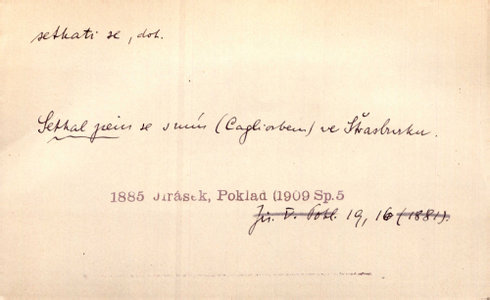 setkati se, dok.
Setkal jsem se s ním (Cagliostrem) ve Štrasburku.
1885 Jirásek, Poklad (1909 Sp.5
Jir. 19, 16 (1881).